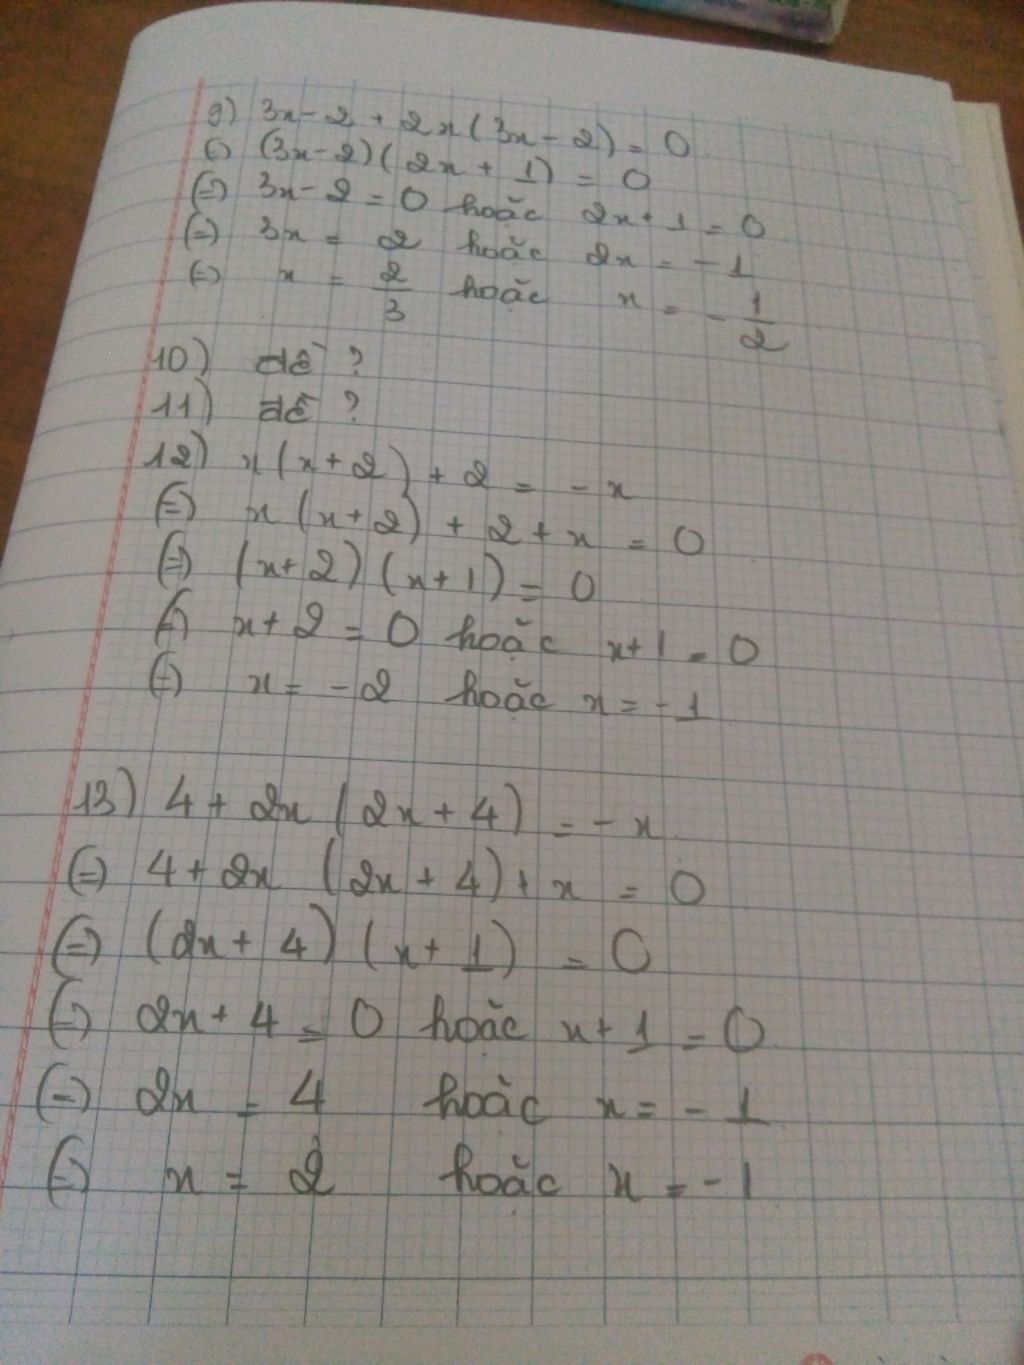 9) 3x - 2 + 2x(3x - 2) = 0
(=) (3x - 2)(2x + 1) = 0
(=) 3x - 2 = 0 hoặc 2x + 1 = 0
(=) 3x = 2 hoặc 2x = -1
(=) x = 2/3 hoặc x = -1/2
10) đề ?
11) đề ?
12) x(x + 2) + 2 = -x
(=) x(x + 2) + 2 + x = 0
(=) (x + 2)(x + 1) = 0
(=) x + 2 = 0 hoặc x + 1 = 0
(=) x = -2 hoặc x = -1
13) 4 + 2x(2x + 4) = -x
(=) 4 + 2x(2x + 4) + x = 0
(=) (2x + 4)(x + 1) = 0
(=) 2x + 4 = 0 hoặc x + 1 = 0
(=) 2x = 4 hoặc x = -1
(=) x = 2 hoặc x = -1